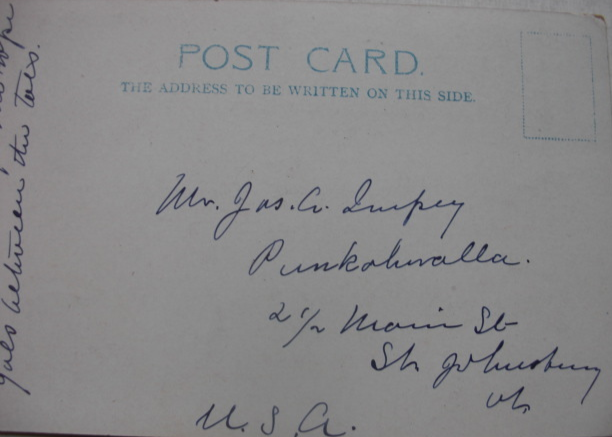 POST CARD.
THE ADDRESS TO BE WRITTEN ON THIS SIDE.
Mr. Jas. A. Impey
Punkahwalla.
2 1/2 Main St
St. Johnsbury
Vt.
U. S. A.
goes between the toes.